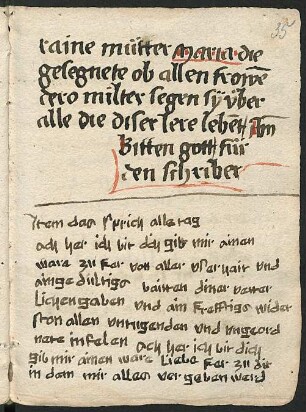 35
raine mütter maria die
gesegnete ob allen frowē
dero milter segen sÿ ÿber
alle die diser lere lebent Am
Bitten gott für
den schriber
Item das sprich alle tag
ach her ich bit dich gib mir ainen
ware zu ker von aller vßerhait vnd
ainge dultigs baiten diner vetter
lichen gaben vnd ain krefftigs wider
ston allen vntugenden vnd vngeord
nete infelen ach her ich bit dich
gib mir ainen ware liebe ker zu dir
in dem mir alles ver geben werd